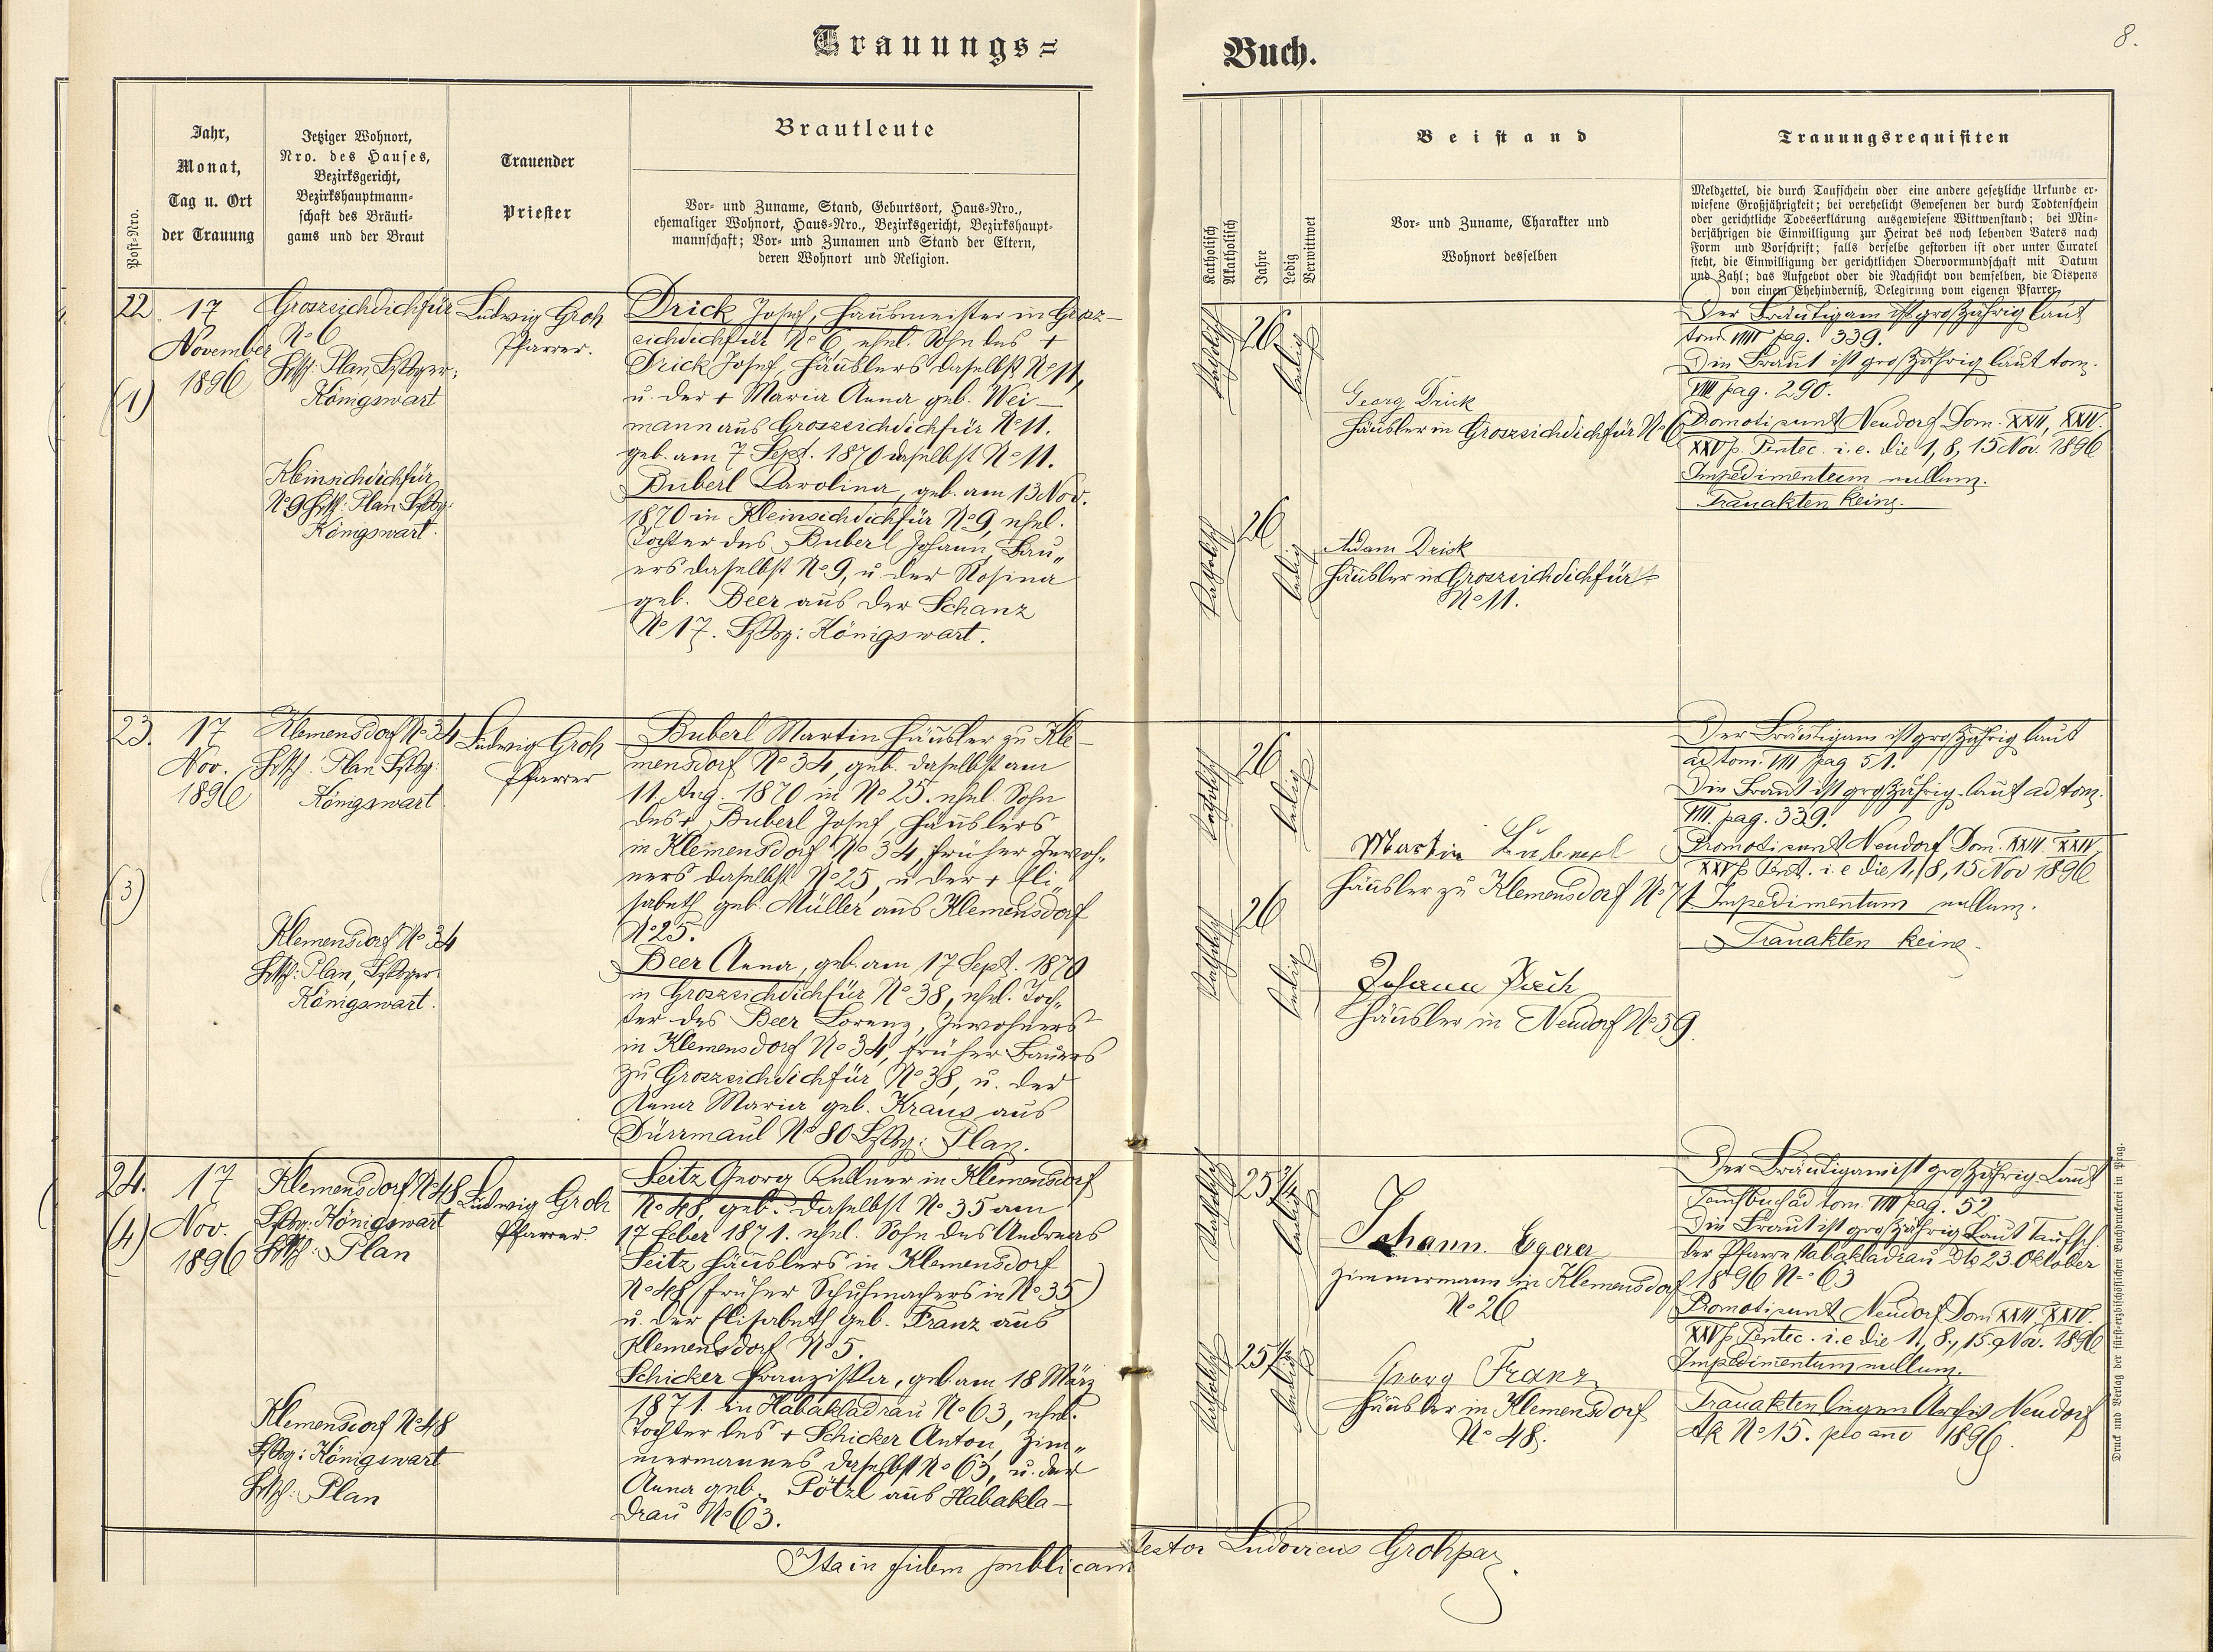 Trauungs=
Buch.
8.
Post-Nro.
Jahr,
Monat,
Tag u. Ort
der Trauung
Jetziger Wohnort,
Nro. des Hauses,
Bezirksgericht,
Bezirkshauptmann-
schaft des Bräuti-
gams und der Braut
Trauender
Priester
Brautleute
Vor- und Zuname, Stand, Geburtsort, Haus-Nro.,
ehemaliger Wohnort, Haus-Nro., Bezirksgericht, Bezirkshaupt-
mannschaft; Vor- und Zunamen und Stand der Eltern,
deren Wohnort und Religion.
Katholisch
Akatholisch
Jahre
Ledig
Verwittwet
Beistand
Vor- und Zuname, Charakter und
Wohnort desselben
Trauungsrequisiten
Meldzettel, die durch Taufschein oder eine andere gesetzliche Urkunde er-
wiesene Großjährigkeit; bei verehelicht Gewesenen der durch Todtenschein
oder gerichtliche Todeserklärung ausgewiesene Wittwenstand; bei Min-
derjährigen die Einwilligung zur Heirat des noch lebenden Vaters nach
Form und Vorschrift; falls derselbe gestorben ist oder unter Curatel
steht, die Einwilligung der gerichtlichen Obervormundschaft mit Datum
und Zahl; das Aufgebot oder die Nachsicht von demselben, die Dispens
von einem Ehehinderniß, Delegirung vom eigenen Pfarrer.
22
(1)
17
November
1896
Groszsichdichfür
No 6
Plan,
Königswart
Kleinsichdichfür
No 9 Plan
Königswart.
Ludwig Groh
Pfarrer.
Drick Josef, Hausmeister in Grosz-
sichdichfür No 6, ehel. Sohn des +
Drick Josef, Häuslers daselbst No 11,
u. der + Maria Anna geb. Wei-
mann aus Groszsichdichfür No 11.
geb. am 7 Sept. 1870 daselbst No 11.
Buberl Carolina, geb. am 13 Nov.
1870 in Kleinsichdichfür No 9, ehel.
Tochter des Buberl Johann, Bau-
ers daselbst No 9, u der Rosina
geb. Beer aus der Schanz
No 17. Königswart.
Katholisch
26
ledig
Georg Drick
Häusler in Groszsichdichfür No 6
Katholisch
26
ledig
Adam Drick
Häusler in Groszsichdichfür
No 11.
Der Bräutigam ist großjährig laut
tom. VIII pag. 339.
Die Braut ist großjährig laut tom.
VIII pag. 290.
Promoti sunt Neudorf Dom. XXIII, XXIV.
XXV p. Pentec. i.e. die 1, 8, 15 Nov. 1896
Impedimentum nullum.
Trauakten keine.
23.
(3)
17
Nov.
1896
Klemensdorf No 34
Plan
Königswart
Klemensdorf No 34
Plan,
Königswart.
Ludwig Groh
Pfarrer
Buberl Martin Häusler zu Kle-
mensdorf No 34, geb. daselbst am
11. Aug. 1870 in No 25. ehel. Sohn
des + Buberl Josef, Häuslers
in Klemensdorf No 34, früher Inwoh-
ners daselbst No 25, u der + Eli-
sabeth geb. Müller aus Klemensdorf
No 25.
Beer Anna, geb. am 17 Sept. 1870
in Groszsichdichfür No 38, ehel. Toch-
ter des Beer Lorenz, Inwohners
in Klemensdorf No 34, früher Bauers
zu Groszsichdichfür No 38, u. der
Anna Maria geb. Kraus aus
Dürrmaul No 80 Plan.
Katholisch
26
ledig
Martin
Häusler zu Klemensdorf No 71
Katholisch
26
ledig
Johann
Häusler in Neudorf No 59.
Der Bräutigam ist großjährig laut
ad tom. VIII pag 51.
Die Braut ist großjährig laut ad tom.
VIII. pag. 339.
Promoti sunt Neudorf Dom. XXIII. XXIV
XXV p. Pent. i. e die 1, 8, 15 Nov 1896
Impedimentum nullum.
Trauakten keine.
24.
(4)
17
Nov.
1896
Klemensdorf No 48
Königswart
Plan
Klemensdorf No 48
Königswart
Plan
Ludwig Groh
Pfarrer
Seitz Georg Kellner in Klemensdorf
No 48, geb. daselbst No 35 am
17 Feber 1871. ehel. Sohn des Andreas
Seitz Häuslers in Klemensdorf
No 48 (früher Schuhmachers in No 35)
u. der Elisabeth geb. Franz aus
Klemensdorf No 5.
Schicker Franziska, geb. am 18 März
1871. in Habakladrau No 63, ehel.
Tochter des + Schicker Anton, Zim-
mermannes daselbst No 63, u. der
Anna geb. Pötzl aus Habakla-
drau No 63.
Katholisch
ledig
Johann Egerer
Zimmermann in Klemensdorf
No 26
Katholisch
ledig
Georg Franz
Häusler in Klemensdorf
No 48.
Der Bräutigam ist großjährig Laut
Taufbuch ad tom. VIII pag. 52.
Die Braut ist großjährig Laut Taufsch.
der Pfarre Habakladrau dto 23 Oktober
1896 No 63
Promoti sunt Neudorf Dom XXIII, XXIV.
XXV p. Pentec. i.e die 1, 8, 15. Nov. 1896
Impedimentum nullum.
Trauakten liegen Archiv Neudorf
No 15. pro ano 1896.
Druck und Verlag der fürst-erzbischöflichen Buchdruckerei in Prag.
Ita in fidem publicam testor Ludovicus Groh par.